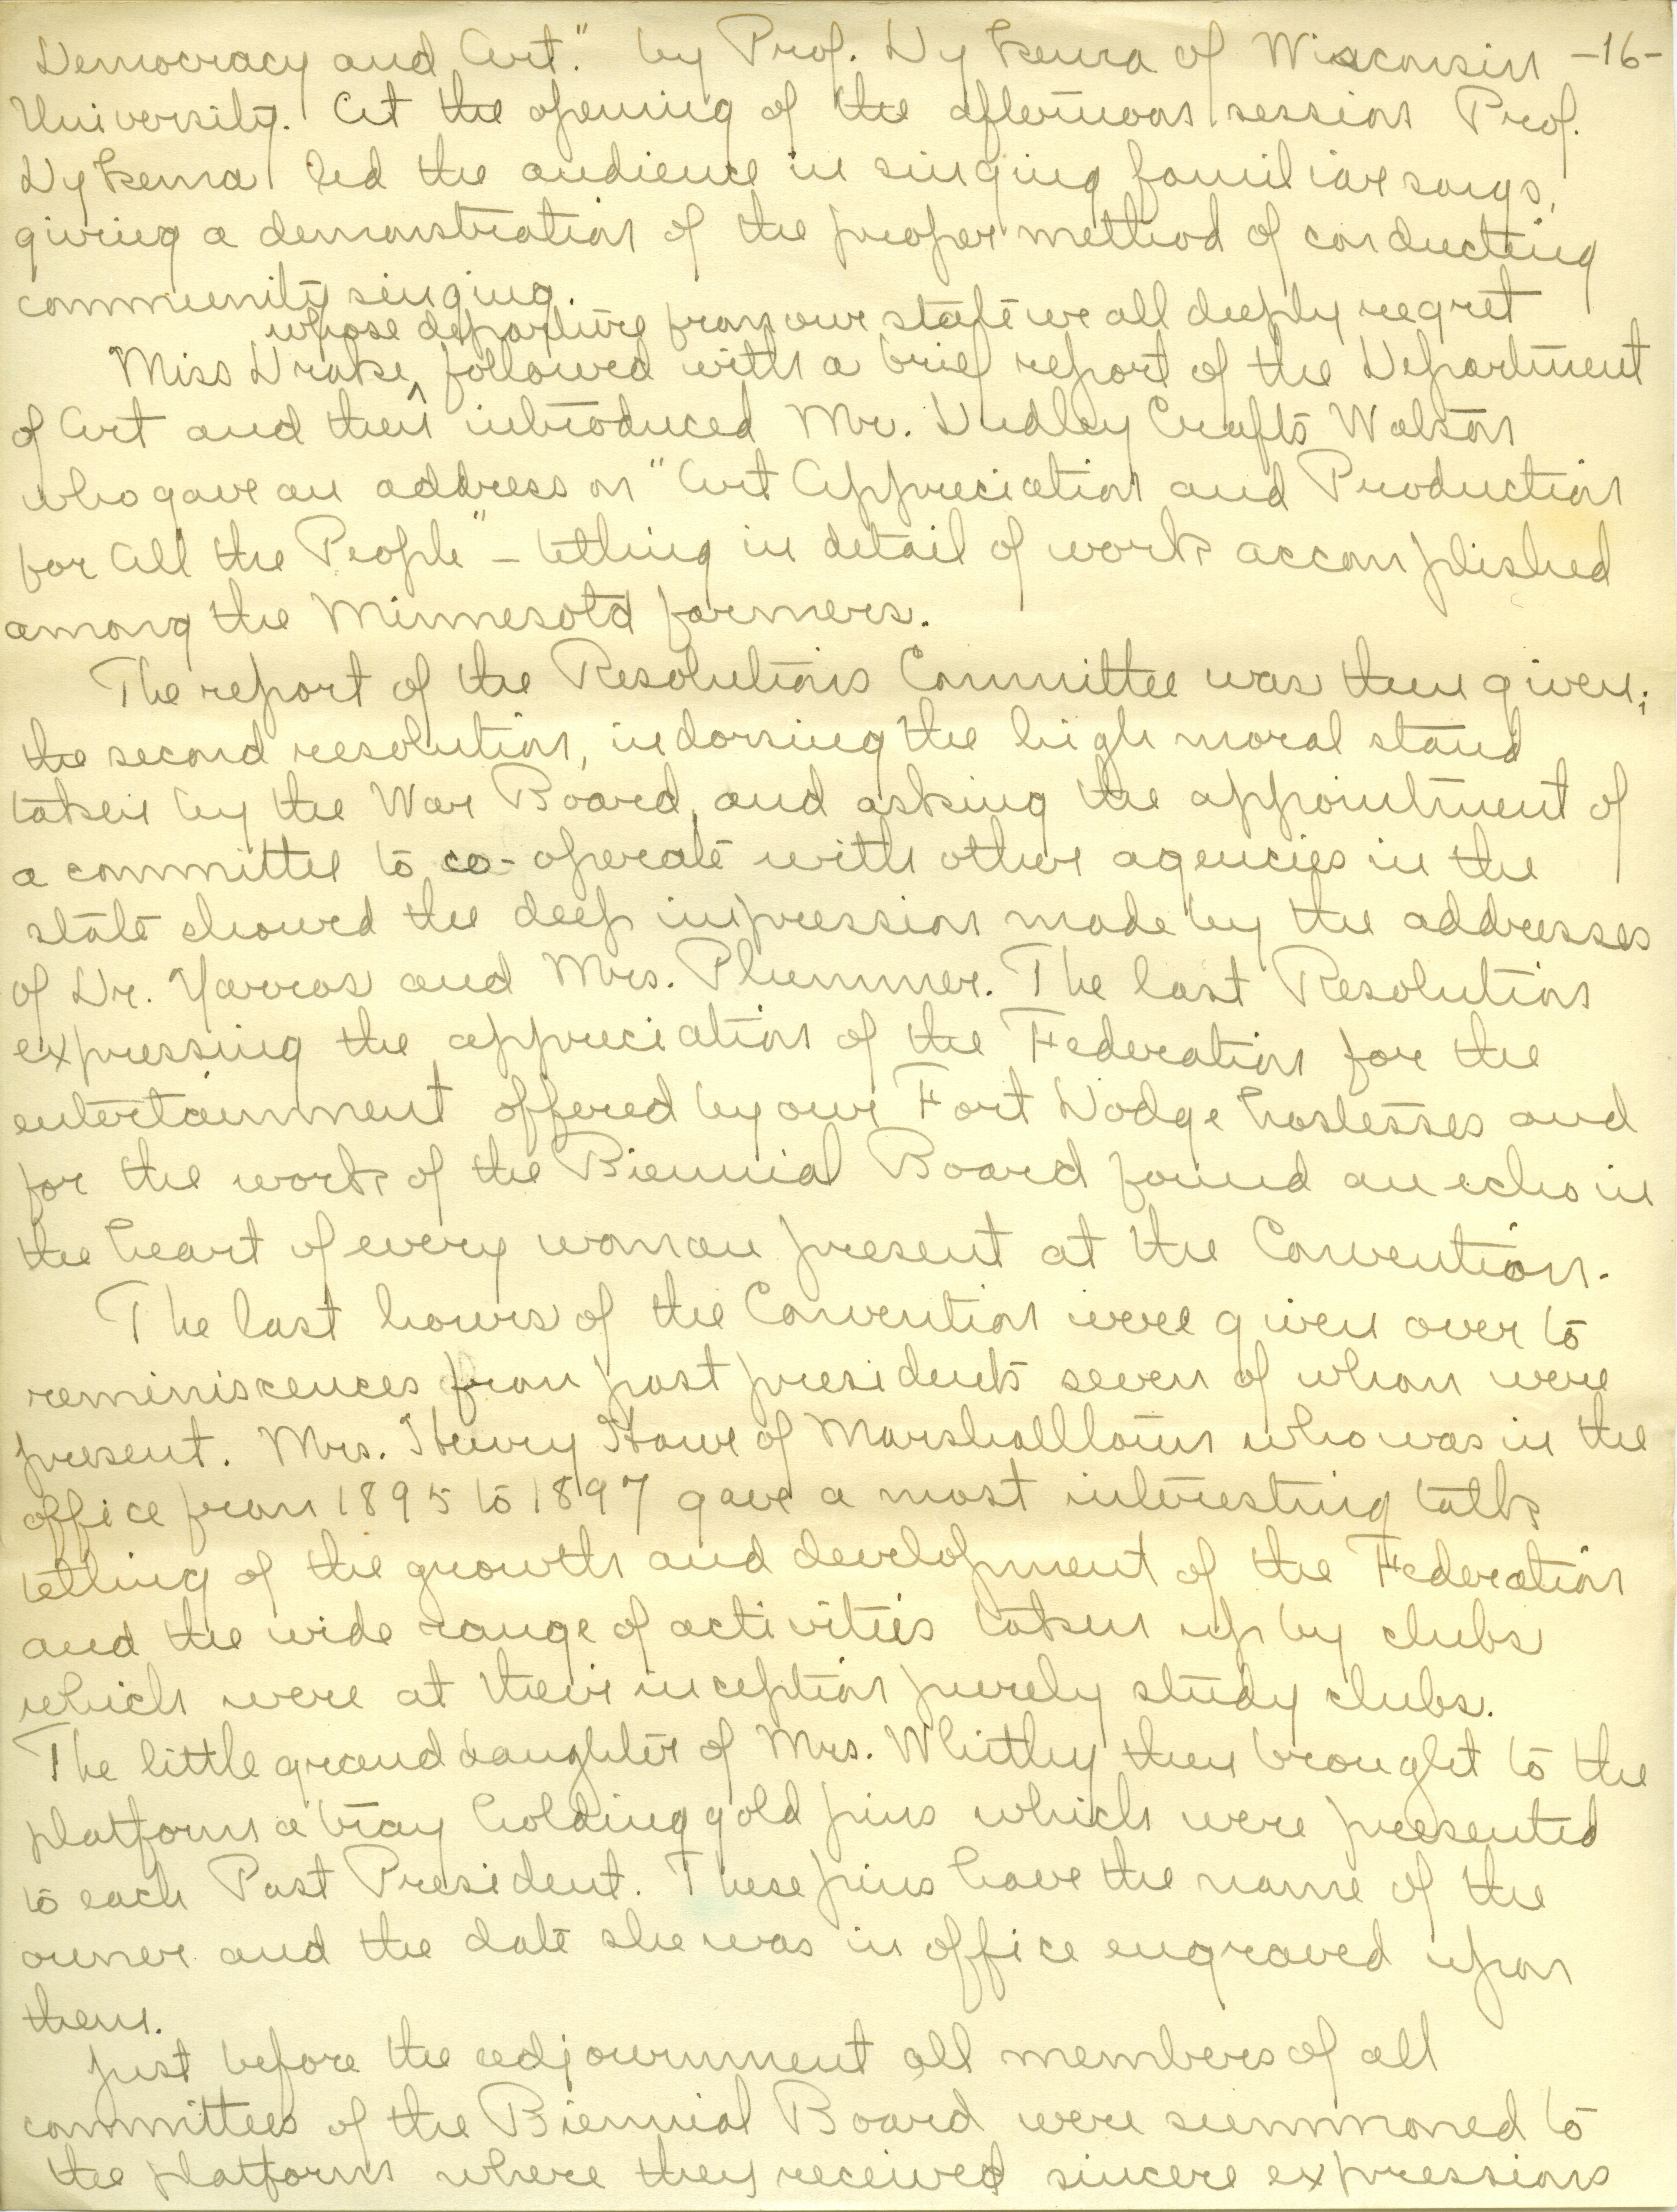 Democracy and Art." by Prof. Dykema of Wisconsin -16-
University. At the opening of the afternoon session Prof.
Dykema led the audience in singing familiar songs,
giving a demonstration of the proper method of conducting
community singing.
whose departure from our state we all deeply regret
Miss Drake, ^ followed with a brief report of the Department
of Art and then introduced Mr. Dudley Crafts Watson
who gave an address on "Art Appreciation and Production
for All the People" - telling in detail of work accomplished
among the Minnesota farmers.
The report of the Resolutions Committee was then given;
the second resolution, indorsing the high moral stand
taken by the War Board, and asking the appointment of
a committee to co-operate with other agencies in the
state showed the deep impression made by the addresses
of Dr. Yarros and Mrs. Plummer. The last Resolution
expressing the appreciation of the Federation for the
entertainment offered by our Fort Dodge hostesses and
for the work of the Biennial Board found an echo in
the heart of every woman present at the Convention.
The last hours of the Convention were given over to
reminiscences from past presidents seven of whom were
present. Mrs. Henry Howe of Marshalltown who was in the
office from 1895 to 1897 gave a most interesting talk
telling of the growth and development of the Federation
and the wide range of activities taken up by clubs
which were at their inception purely study clubs.
The little granddaughter of Mrs. Whitley then brought to the
platform a tray holding gold pins which were presented
to each Past President. These pins have the name of the
owner and the date she was in office engraved upon
them.
Just before the adjournment all members of all
committees of the Biennial Board were summoned to
the platform where they received sincere expressions